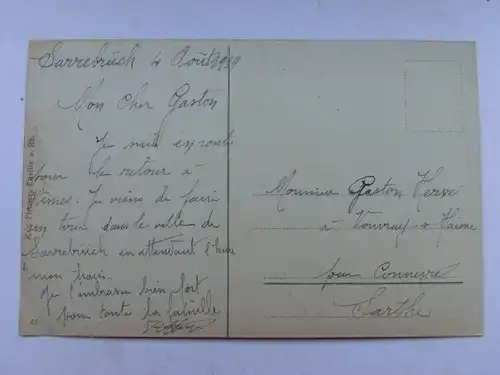 Sarrebrück 4 Août 1919
Mon Cher Gaston
Je suis en route
pour le retour à
Nîmes. Je viens de faire
un tour dans la ville de
Sarrebrück en attendant l'heure
mon train.
Je t'embrasse bien fort
pour toute la famille
Monsieur Gaston
à Vouvray s Huisne
pour Connerré
Sarthe